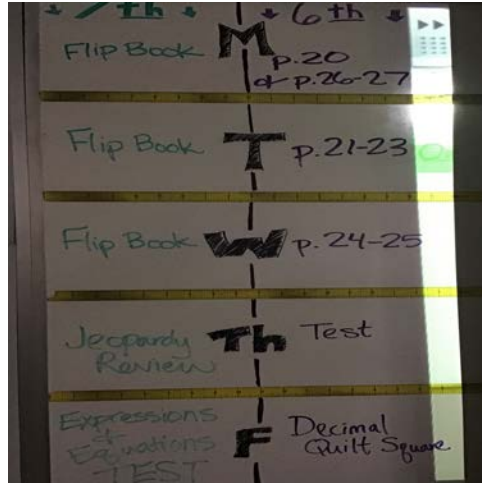 ↓ 7th ↓ ↓ 6th ↓
Flip Book M p.20
or p.26-27
Flip Book T p.21-23
Flip Book W p.24-25
Jeopardy Review Th Test
Expressions & Equations TEST F Decimal Quilt Square